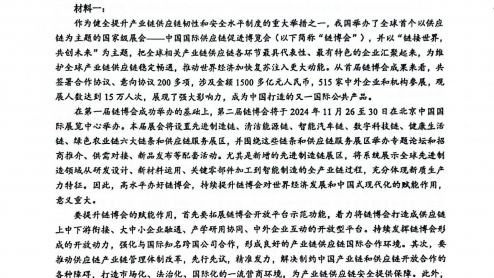 材料一：
作为健全提升产业链供应链韧性和安全水平制度的重大举措之一，我国举办了全球首个以供应
链为主题的国家级展会——中国国际供应链促进博览会（以下简称“链博会”），并以“链接世界，
共创未来”为主题，把全球相关产业链供应链各环节最具代表性、最有特色的企业汇聚起来，为维
护全球产业链供应链稳定畅通，推动世界经济和恢复苏注入更大动能。从首届链博会成果来看，共
签署合作协议、意向协议 200 多项，涉及金额 1500 多亿元人民币，515 家中外企业和机构参展，观
展人数达到 15 万人次，展现了强大影响力，成为中国打造的又一国际公共产品。
在第一届链博会成功举办的基础上，第二届链博会将于 2024 年 11 月 26 至 30 日在北京中国国
际展览中心举办。本届展会将设置先进制造链、清洁能源链、智能汽车链、数字科技链、健康生活
链、绿色农业链六大链条和供应链服务展区，并围绕这些链条和供应链服务展区举办专题论坛和招
商推介、供需对接、新品发布等配套活动。尤其是新增的先进制造链展区，将系统展示全球先进制
造领域从研发设计、新材料运用、关键零部件加工到智能制造的全产业链过程，充分体现新质生产
力特征。因此，高水平办好链博会，持续提升链博会对世界经济发展和中国式现代化的赋能作用，
意义重大。
要提升链博会的赋能作用，首先要拓展链博会开放平台示范功能，着力将链博会打造成供应链
上中下游衔接、大中小企业融通、产学研用协同、中外企业互动的开放型平台。持续发挥链博会形
成的开放动力，强化与国际知名跨国公司合作，形成良好的产业链供应链国际合作环境。其次，要
推动供应链产业链管理体制改革，先行先试，精准发力，解决制约中国产业链和供应链开放合作的
各种障碍，打造市场化、法治化、国际化的一流营商环境，为产业链供应链安全提供保障。